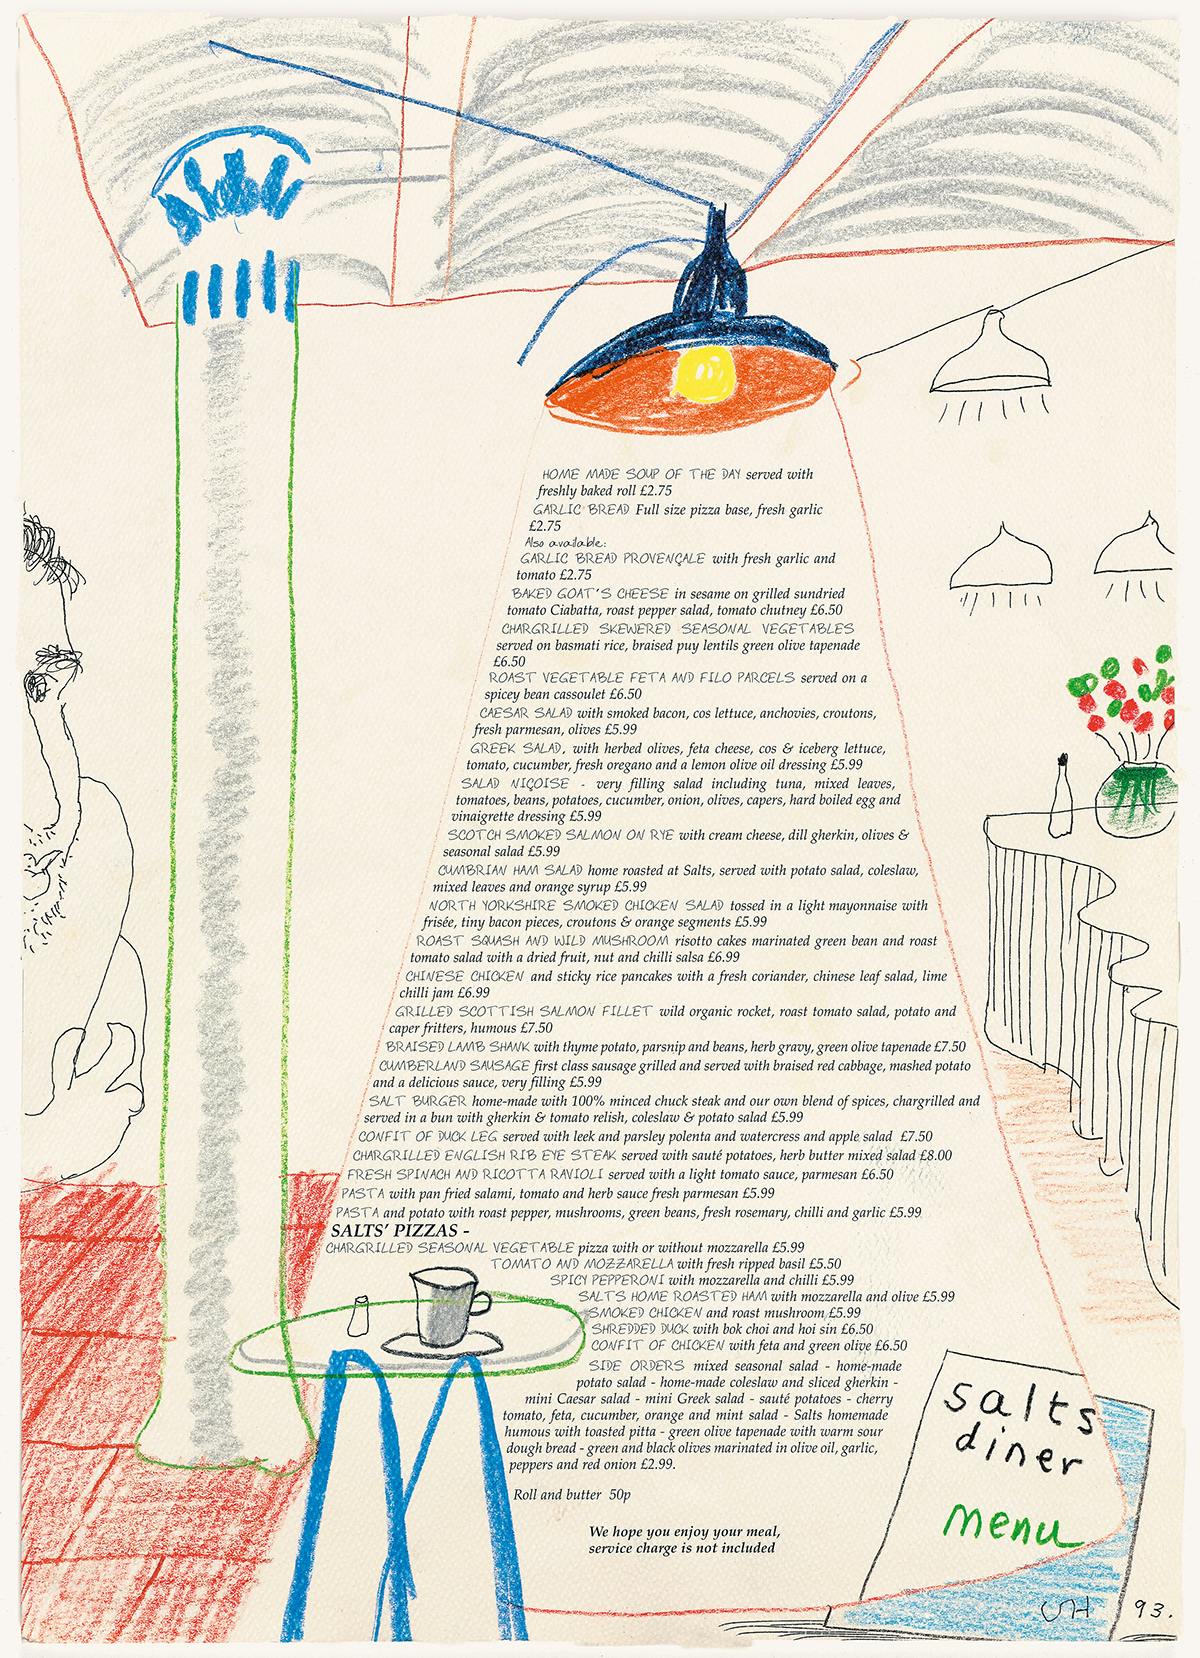 HOME MADE SOUP OF THE DAY served with
freshly baked roll £2.75
GARLIC BREAD Full size pizza base, fresh garlic
£2.75
Also available:
GARLIC BREAD PROVENÇALE with fresh garlic and
tomato £2.75
BAKED GOAT'S CHEESE in sesame on grilled sundried
tomato Ciabatta, roast pepper salad, tomato chutney £6.50
CHARGRILLED SKEWERED SEASONAL VEGETABLES
served on basmati rice, braised puy lentils green olive tapenade
£6.50
ROAST VEGETABLE FETA AND FILO PARCELS served on a
spicey bean cassoulet £6.50
CAESAR SALAD with smoked bacon, cos lettuce, anchovies, croutons,
fresh parmesan, olives £5.99
GREEK SALAD, with herbed olives, feta cheese, cos & iceberg lettuce,
tomato, cucumber, fresh oregano and a lemon olive oil dressing £5.99
SALAD NIÇOISE - very filling salad including tuna, mixed leaves,
tomatoes, beans, potatoes, cucumber, onion, olives, capers, hard boiled egg and
vinaigrette dressing £5.99
SCOTCH SMOKED SALMON ON RYE with cream cheese, dill gherkin, olives &
seasonal salad £5.99
CUMBRIAN HAM SALAD home roasted at Salts, served with potato salad, coleslaw,
mixed leaves and orange syrup £5.99
NORTH YORKSHIRE SMOKED CHICKEN SALAD tossed in a light mayonnaise with
frisée, tiny bacon pieces, croutons & orange segments £5.99
ROAST SQUASH AND WILD MUSHROOM risotto cakes marinated green bean and roast
tomato salad with a dried fruit, nut and chilli salsa £6.99
CHINESE CHICKEN and sticky rice pancakes with a fresh coriander, chinese leaf salad, lime
chilli jam £6.99
GRILLED SCOTTISH SALMON FILLET wild organic rocket, roast tomato salad, potato and
caper fritters, humous £7.50
BRAISED LAMB SHANK with thyme potato, parsnip and beans, herb gravy, green olive tapenade £7.50
CUMBERLAND SAUSAGE first class sausage grilled and served with braised red cabbage, mashed potato
and a delicious sauce, very filling £5.99
SALT BURGER home-made with 100% minced chuck steak and our own blend of spices, chargrilled and
served in a bun with gherkin & tomato relish, coleslaw & potato salad £5.99
CONFIT OF DUCK LEG served with leek and parsley polenta and watercress and apple salad £7.50
CHARGRILLED ENGLISH RIB EYE STEAK served with sauté potatoes, herb butter mixed salad £8.00
FRESH SPINACH AND RICOTTA RAVIOLI served with a light tomato sauce, parmesan £6.50
PASTA with pan fried salami, tomato and herb sauce fresh parmesan £5.99
PASTA and potato with roast pepper, mushrooms, green beans, fresh rosemary, chilli and garlic £5.99
SALTS' PIZZAS -
CHARGRILLED SEASONAL VEGETABLE pizza with or without mozzarella £5.99
TOMATO AND MOZZARELLA with fresh ripped basil £5.50
SPICY PEPPERONI with mozzarella and chilli £5.99
SALTS HOME ROASTED HAM with mozzarella and olive £5.99
SMOKED CHICKEN and roast mushroom £5.99
SHREDDED DUCK with bok choi and hoi sin £6.50
CONFIT OF CHICKEN with feta and green olive £6.50
SIDE ORDERS mixed seasonal salad - home-made
potato salad - home-made coleslaw and sliced gherkin -
mini Caesar salad - mini Greek salad - sauté potatoes - cherry
tomato, feta, cucumber, orange and mint salad - Salts homemade
humous with toasted pitta - green olive tapenade with warm sour
dough bread - green and black olives marinated in olive oil, garlic,
peppers and red onion £2.99.
Roll and butter 50p
We hope you enjoy your meal,
service charge is not included
salts
diner
menu
DH 93.